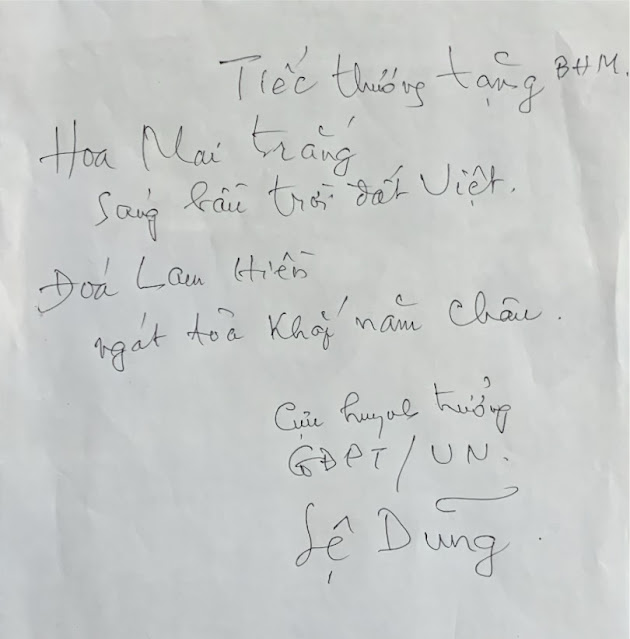 Tiếc thương tặng BHM.
Hoa Mai trắng
Sáng bầu trời đất Việt.
Đoá Lam Hiền
ngát toả khắp năm Châu.
Cựu huynh trưởng
GĐPT/VN.
Lệ Dũng